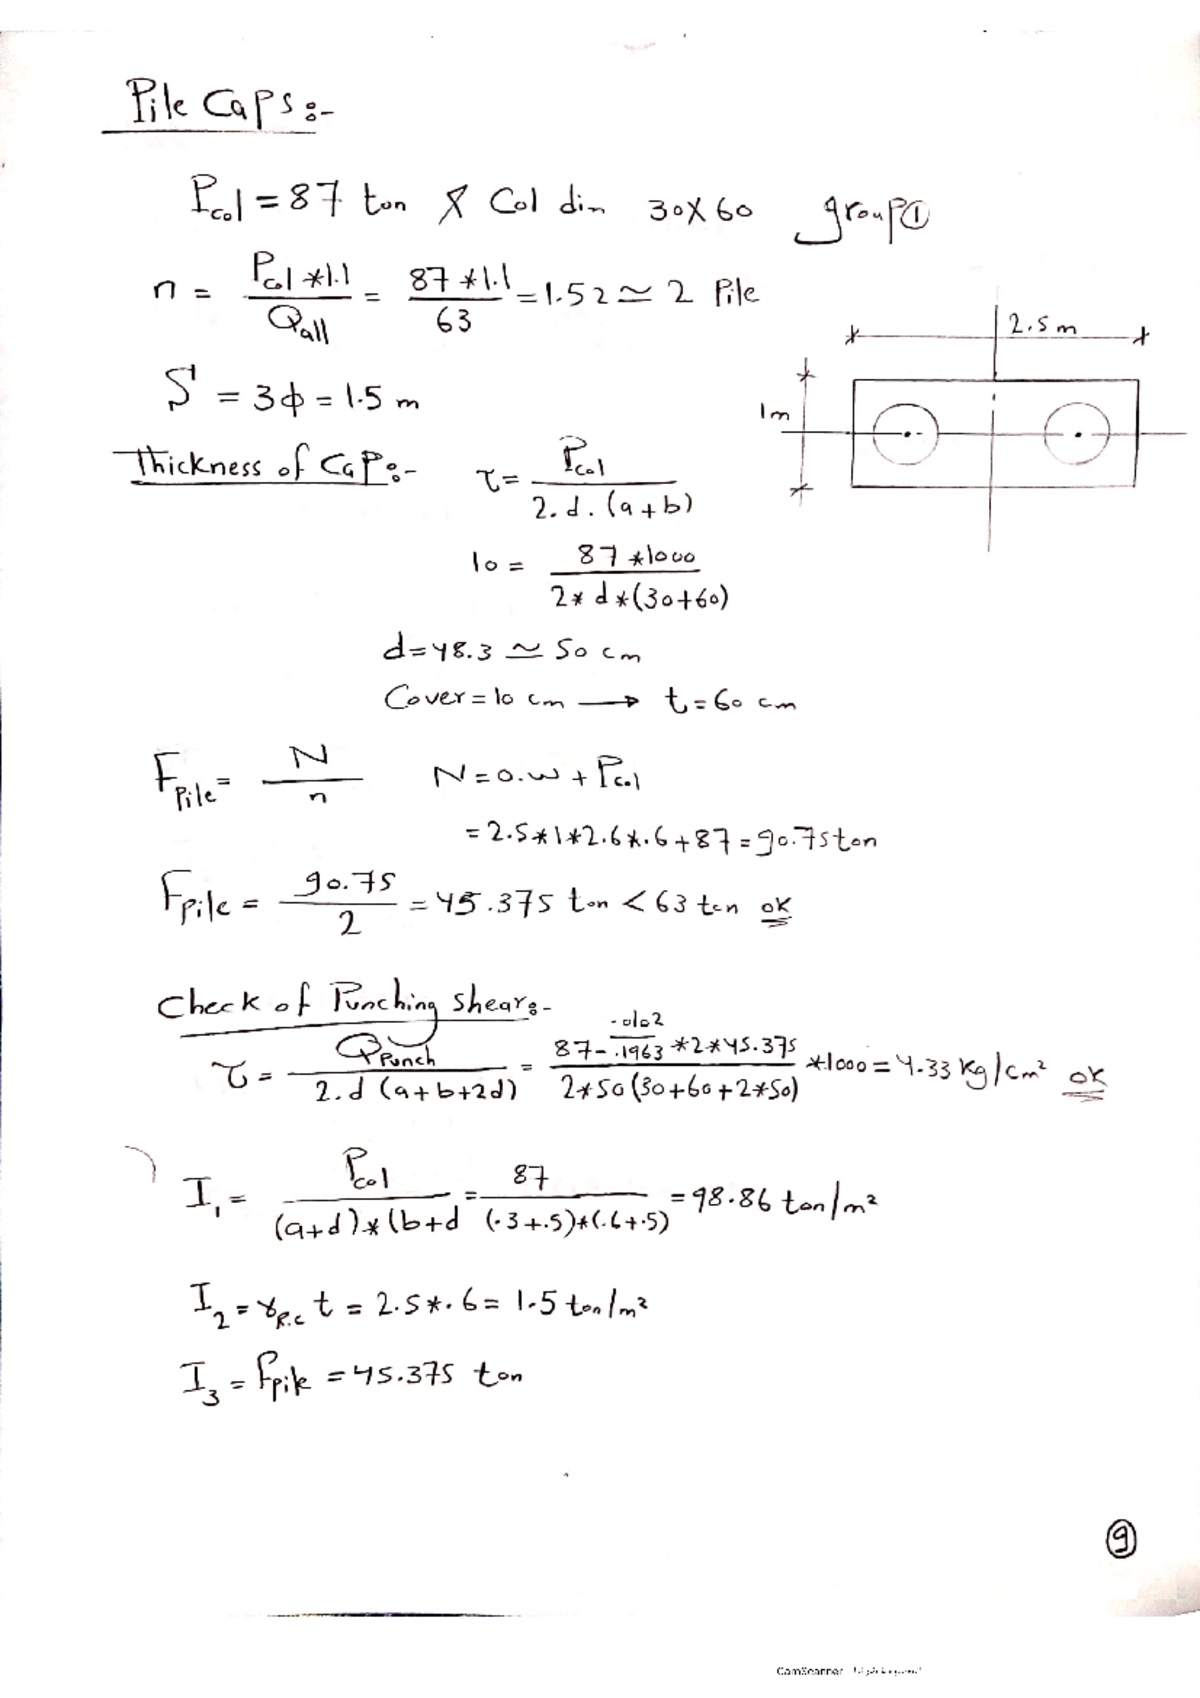 Pile Caps:-
Pcol = 87 ton & Col dim 30X60 group ①
n = Pcol *1.1 / Qall = 87 *1.1 / 63 = 1.52 ≃ 2 Pile
2.5m
S = 3ϕ = 1.5 m
1m
Thickness of Cap:- τ = Pcol / 2.d.(a+b)
10 = 87 *1000 / 2* d*(30+60)
d=48.3 ≃ 50 cm
Cover = 10 cm → t = 60 cm
FPile = N / n N = o.w + Pcol
= 2.5*1*2.6*.6+87 = 90.75 ton
Fpile = 90.75 / 2 = 45.375 ton < 63 ton ok
Check of Punching shear:-
τ = QPunch / 2.d (a+b+2d) = 87 - .0102 / .1963 *2*45.375 / 2*50(30+60+2*50) *1000 = 4.33 kg/cm² ok
I1 = Pcol / (a+d)*(b+d = 87 / (.3+.5)*(.6+.5) = 98.86 ton/m²
I2 = γR.c t = 2.5*.6 = 1.5 ton/m²
I3 = Fpile = 45.375 ton
⑨
CamScanner